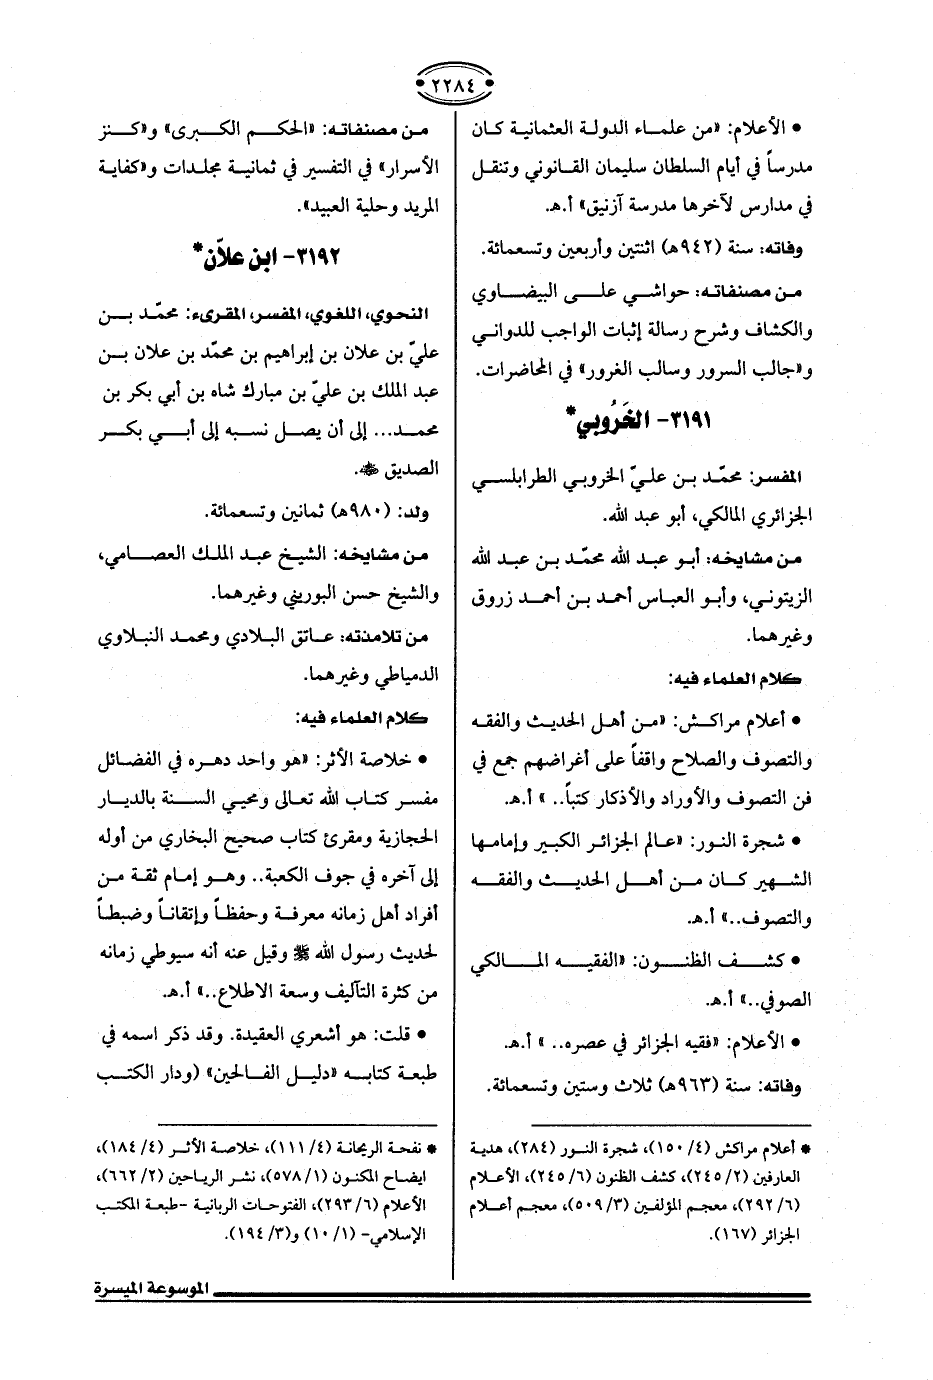 ٢٢٨٤
• الأعلام: «من علماء الدولة العثمانية كان
مدرساً في أيام السلطان سليمان القانوني وتنقل
في مدارس لآخرها مدرسة آزنيق» أ.هـ.
وفاته: سنة (٩٤٢هـ) اثنتين وأربعين وتسعمائة.
من مصنفاته: حواشي على البيضاوي
والكشاف وشرح رسالة إثبات الواجب للدواني
و«جالب السرور وسالب الغرور» في المحاضرات.
٣١٩١- الخَرُوبي*
المفسر: محمّد بن عليّ الخروبي الطرابلسي
الجزائري المالكي، أبو عبد الله.
من مشايخه: أبو عبد الله محمّد بن عبد الله
الزيتوني، وأبو العباس أحمد بن أحمد زروق
وغيرهما.
كلام العلماء فيه:
• أعلام مراكش: «من أهل الحديث والفقه
والتصوف والصلاح واقفاً على أغراضهم جمع في
فن التصوف والأوراد والأذكار كتباً.. » أ.هـ.
• شجرة النور: «عالم الجزائر الكبير وإمامها
الشهير كان من أهل الحديث والفقه
والتصوف..» أ.هـ.
• كشف الظنون: «الفقيه المالكي
الصوفي..» أ.هـ.
• الأعلام: «فقيه الجزائر في عصره.. » أ.هـ.
وفاته: سنة (٩٦٣هـ) ثلاث وستين وتسعمائة.
* أعلام مراكش (٤/ ١٥٠)، شجرة النور (٢٨٤)، هدية
العارفين (٢/ ٢٤٥)، كشف الظنون (٦/ ٢٤٥)، الأعلام
(٦/ ٢٩٢)، معجم المؤلفين (٣/ ٥٠٩)، معجم أعلام
الجزائر (١٦٧).
من مصنفاته: «الحكم الكبرى» و«كنز
الأسرار» في التفسير في ثمانية مجلدات و«كفاية
المريد وحلية العبيد».
٣١٩٢- ابن علاّن*
النحوي، اللغوي، المفسر، المقرىء: محمّد بن
عليّ بن علان بن إبراهيم بن محمّد بن علان بن
عبد الملك بن عليّ بن مبارك شاه بن أبي بكر بن
محمد... إلى أن يصل نسبه إلى أبي بكر
الصديق ﵁.
ولد: (٩٨٠هـ) ثمانين وتسعمائة.
من مشايخه: الشيخ عبد الملك العصامي،
والشيخ حسن البوريني وغيرهما.
من تلامذته: عاتق البلادي ومحمد النبلاوي
الدمياطي وغيرهما.
كلام العلماء فيه:
• خلاصة الأثر: «هو واحد دهره في الفضائل
مفسر كتاب الله تعالى ومحيي السنة بالديار
الحجازية ومقرئ كتاب صحيح البخاري من أوله
إلى آخره في جوف الكعبة.. وهو إمام ثقة من
أفراد أهل زمانه معرفة وحفظاً وإتقاناً وضبطاً
لحديث رسول الله ﷺ وقيل عنه أنه سيوطي زمانه
من كثرة التآليف وسعة الاطلاع..» أ.هـ.
• قلت: هو أشعري العقيدة. وقد ذكر اسمه في
طبعة كتابه «دليل الفالحين» (ودار الكتب
* نفحة الريحانة (٤/ ١١١)، خلاصة الأثر (٤/ ١٨٤)،
ايضاح المكنون (١/ ٥٧٨)، نشر الرياحين (٢/ ٦٦٢)،
الأعلام (٦/ ٢٩٣)، الفتوحات الربانية -طبعة المكتب
الإسلامي- (١/ ١٠) و(٣/ ١٩٤).
الموسوعة الميسرة